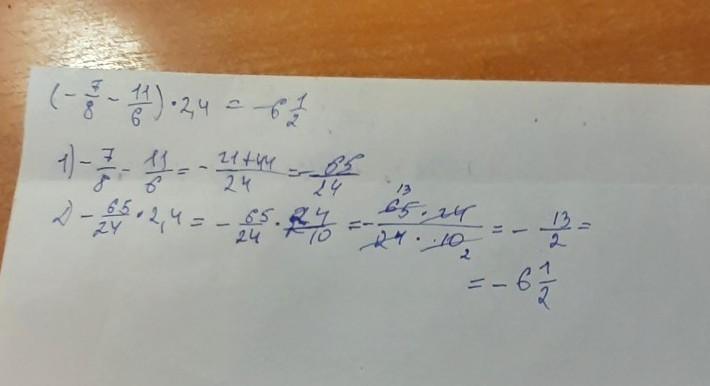 (-7/8 - 11/6) · 2,4 = -6 1/2
1) -7/8 - 11/6 = -21+44/24 = -65/24
2) -65/24 · 2,4 = -65/24 · 24/10 = -65 · 24/24 · 10 13 2 = -13/2 =
= -6 1/2